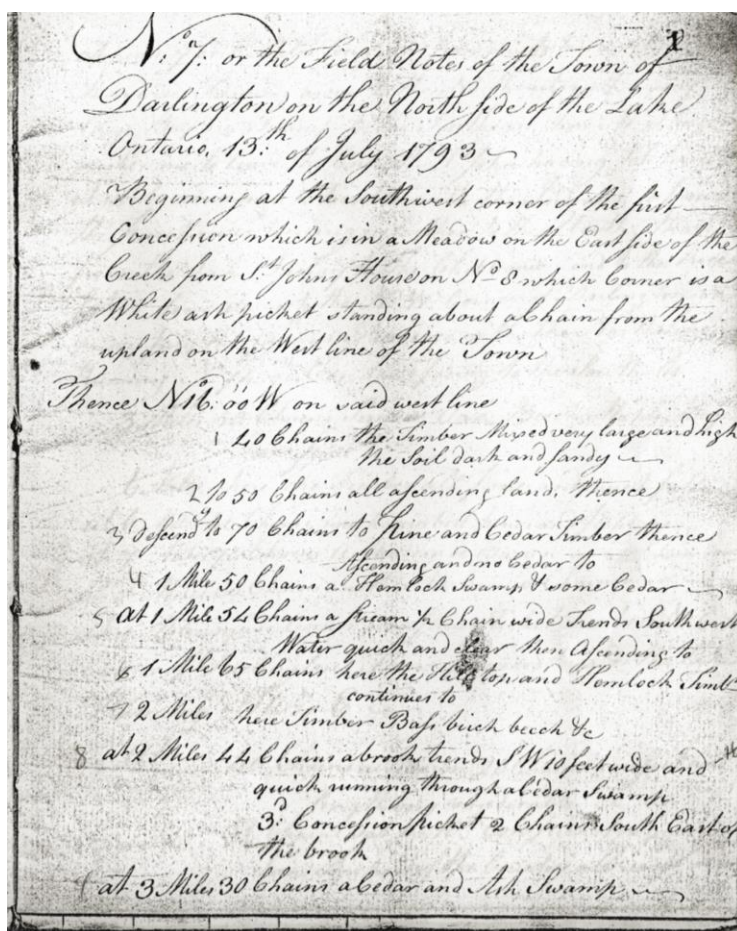 1
No. 7: or the Field Notes of the Town of
Darlington on the North side of the Lake
Ontario, 13:th of July 1793
Beginning at the Southwest corner of the first
Concession which is in a Meadow on the East side of the
Creek from St. Johns House on No 8 which Corner is a
White ash picket standing about a Chain from the
upland on the West line of the Town
Thence N16:°00 W on said west line
1 40 Chains the Timber Mixed very large and high
the Soil dark and sandy
2 to 50 Chains all ascending land, thence
3 descendg to 70 Chains to Pine and Cedar Timber thence
Ascending and no Cedar to
4 1 Mile 50 Chains a Hemlock Swamp & some Cedar
5 at 1 Mile 54 Chains a stream ½ Chain wide Trends Southwest
Water quick and clear then Ascending to
6 1 Mile 65 Chains here the Hill top and Hemlock Timbr
continues to
7 2 Miles here Timber Bass birch beech &c
8 at 2 Miles 44 Chains a brook trends SW 10 feet wide and
quick running through a Cedar Swamp
3:d Concession picket 2 Chains South East of
the brook
at 3 Miles 30 Chains a Cedar and Ash Swamp